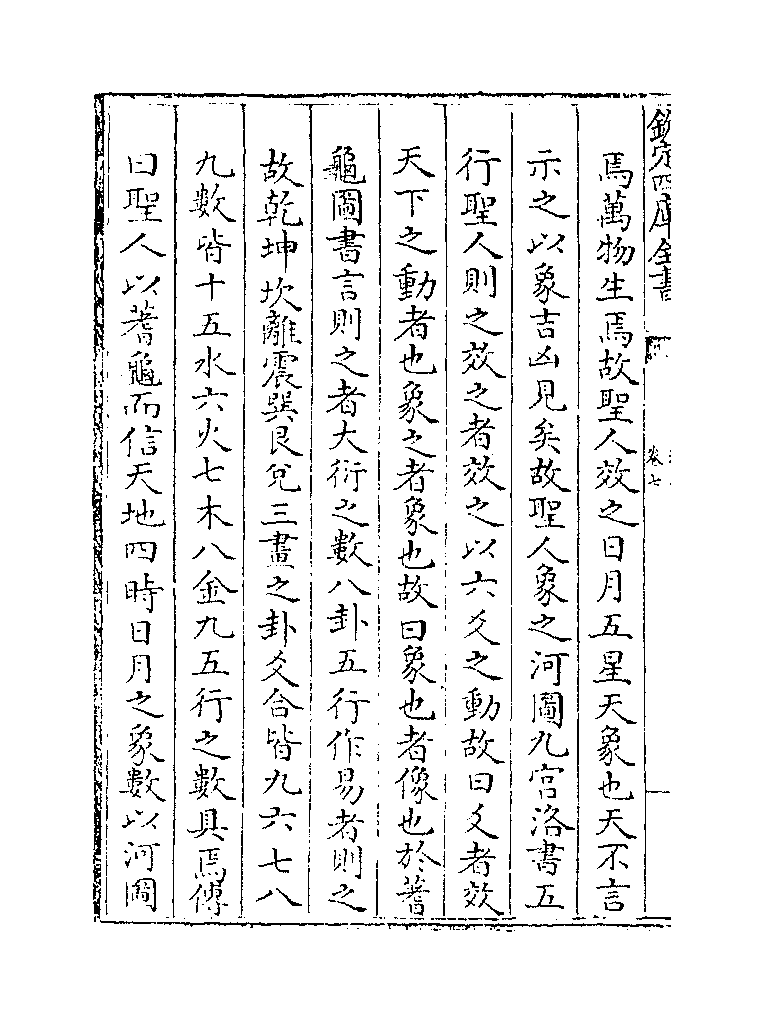 欽定四庫全書
卷七
焉萬物生焉故聖人效之日月五星天象也天不言
示之以象吉凶見矣故聖人象之河圖九宫洛書五
行聖人則之效之者效之以六爻之動故曰爻者效
天下之動者也象之者象也故曰象也者像也於蓍
龜圖書言則之者大衍之數八卦五行作易者則之
故乾坤坎離震巽艮兌三畫之卦爻合皆九六七八
九數皆十五水六火七木八金九五行之數具焉傅
曰聖人以蓍龜而信天地四時日月之象數以河圖